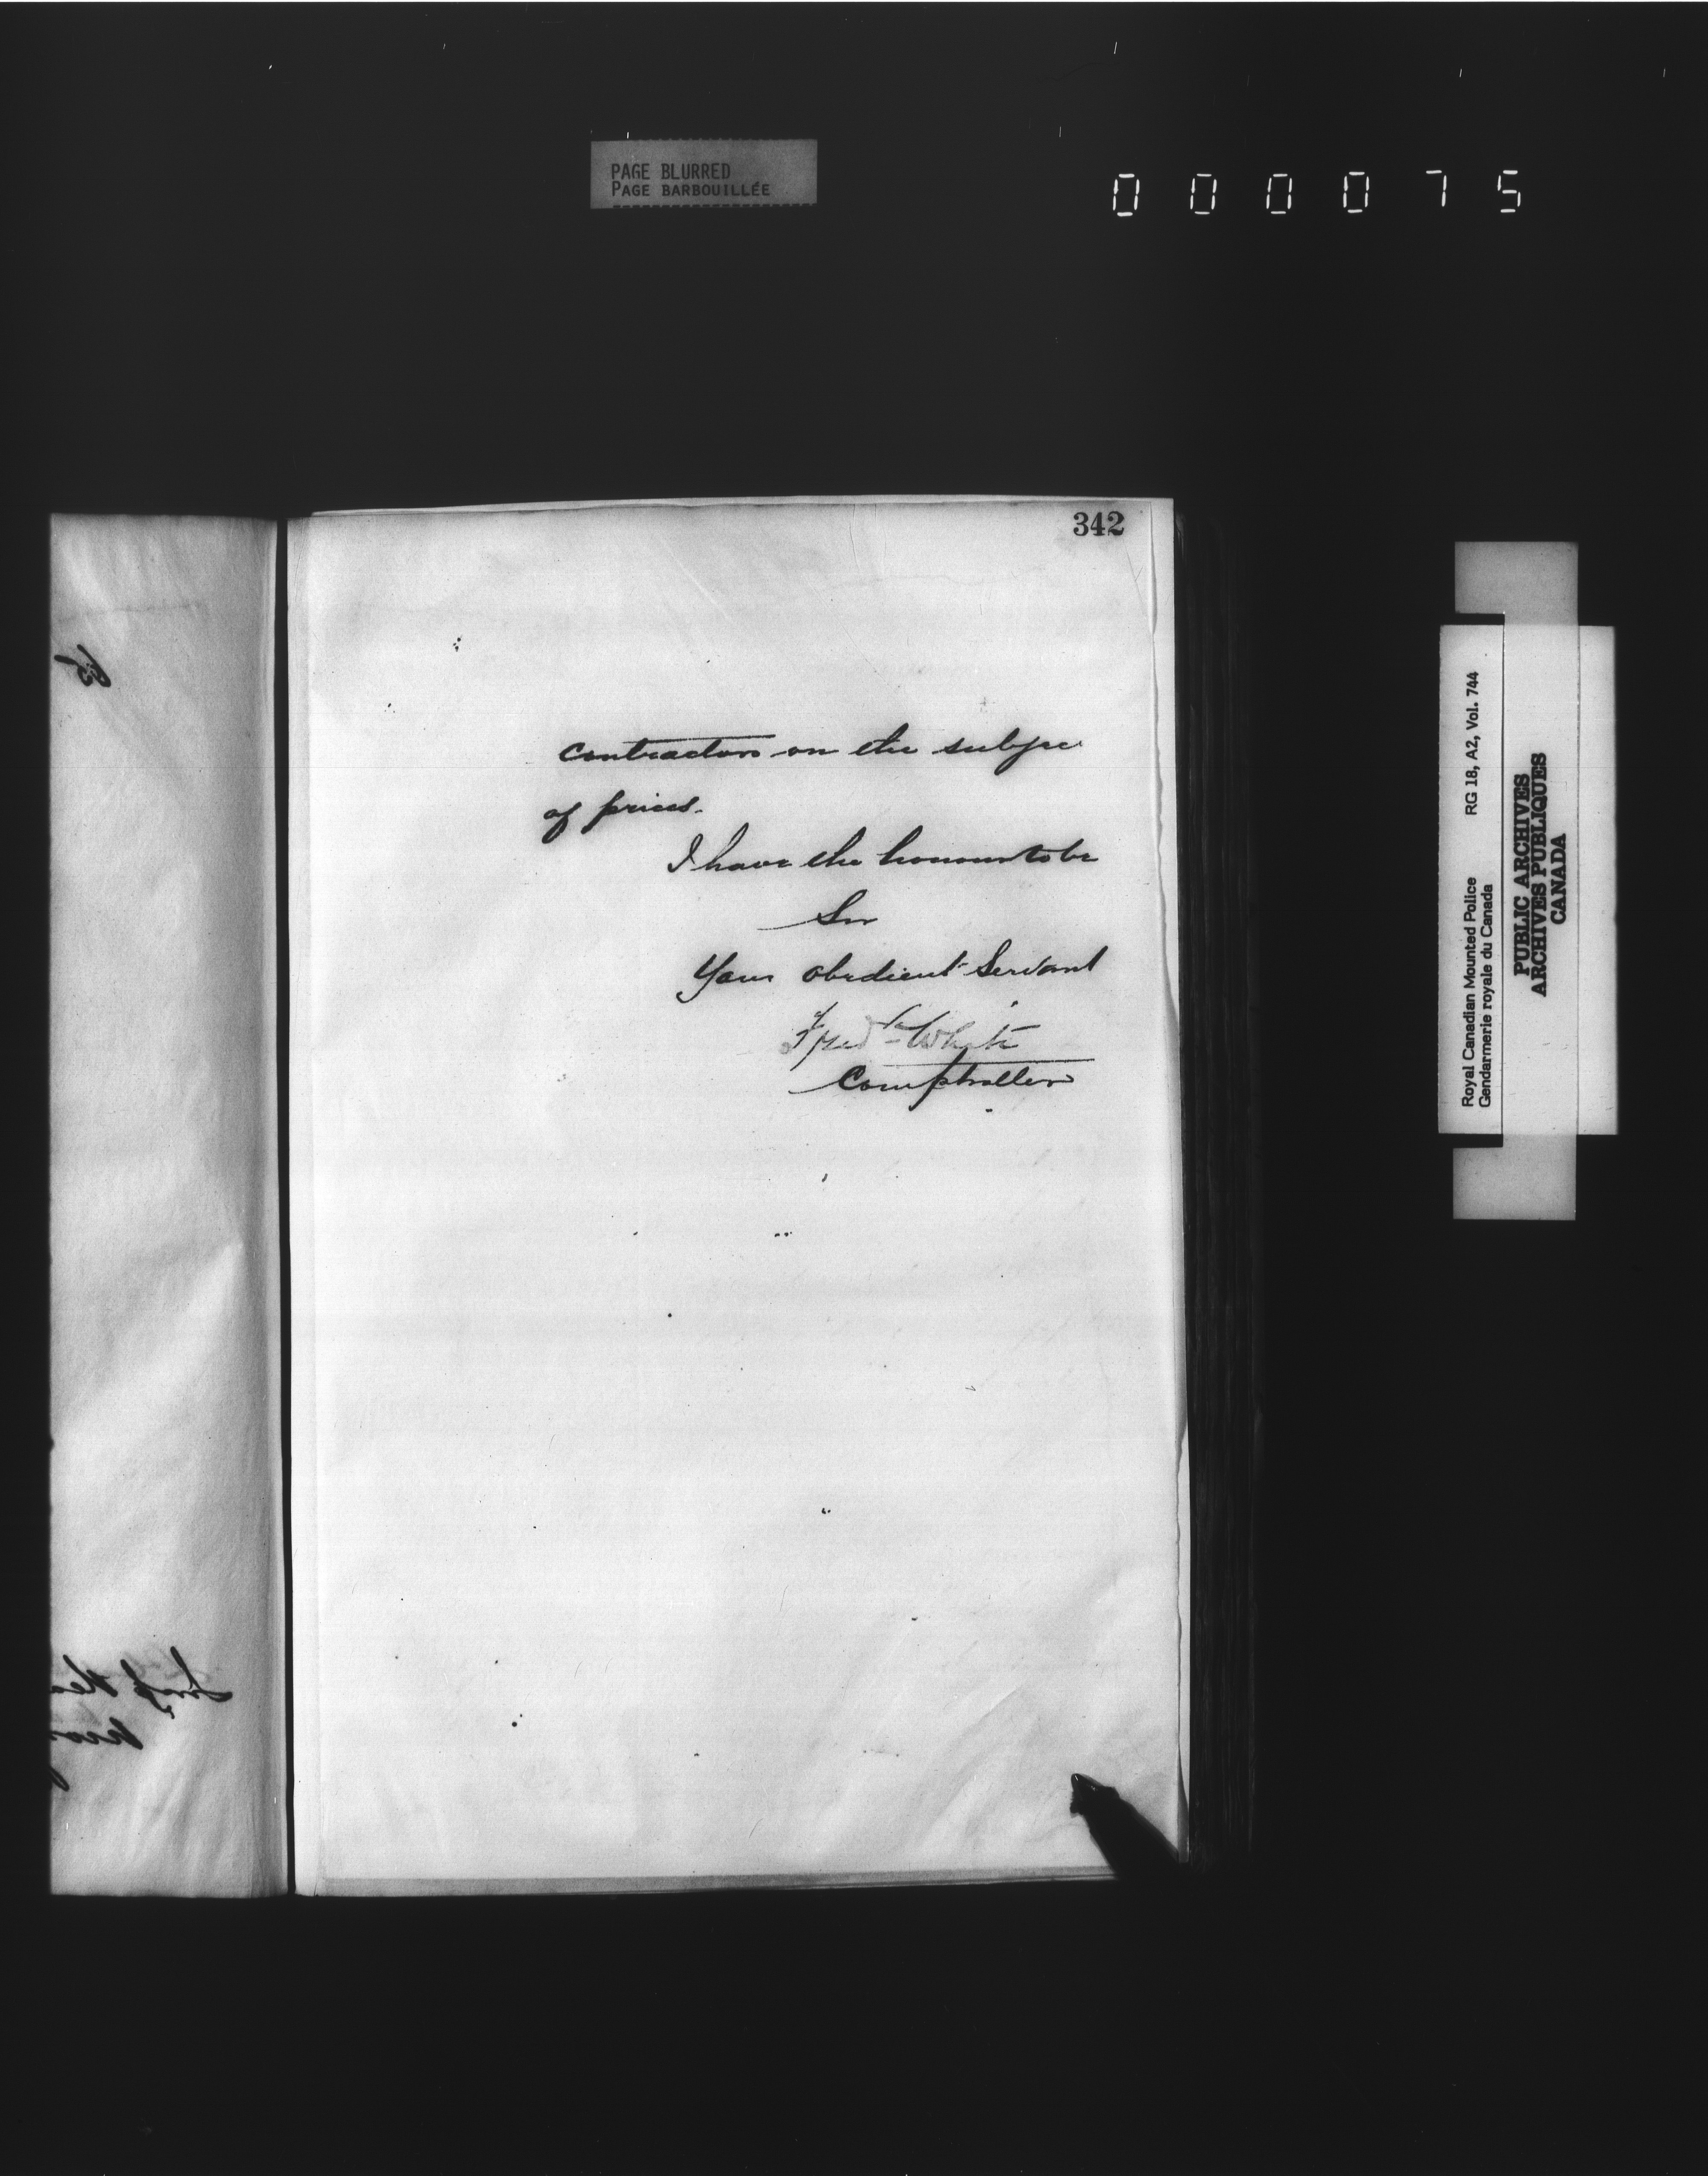 PAGE BLURRED
PAGE BARBOUILLÉE
000075
342
contractors on the subjec
of prices.
I have the honour to be
Sir
Your obedient Servant
Fred White
Comptroller
Royal Canadian Mounted Police RG 18, A2, Vol. 744
Gendarmerie royale du Canada
PUBLIC ARCHIVES
ARCHIVES PUBLIQUES
CANADA